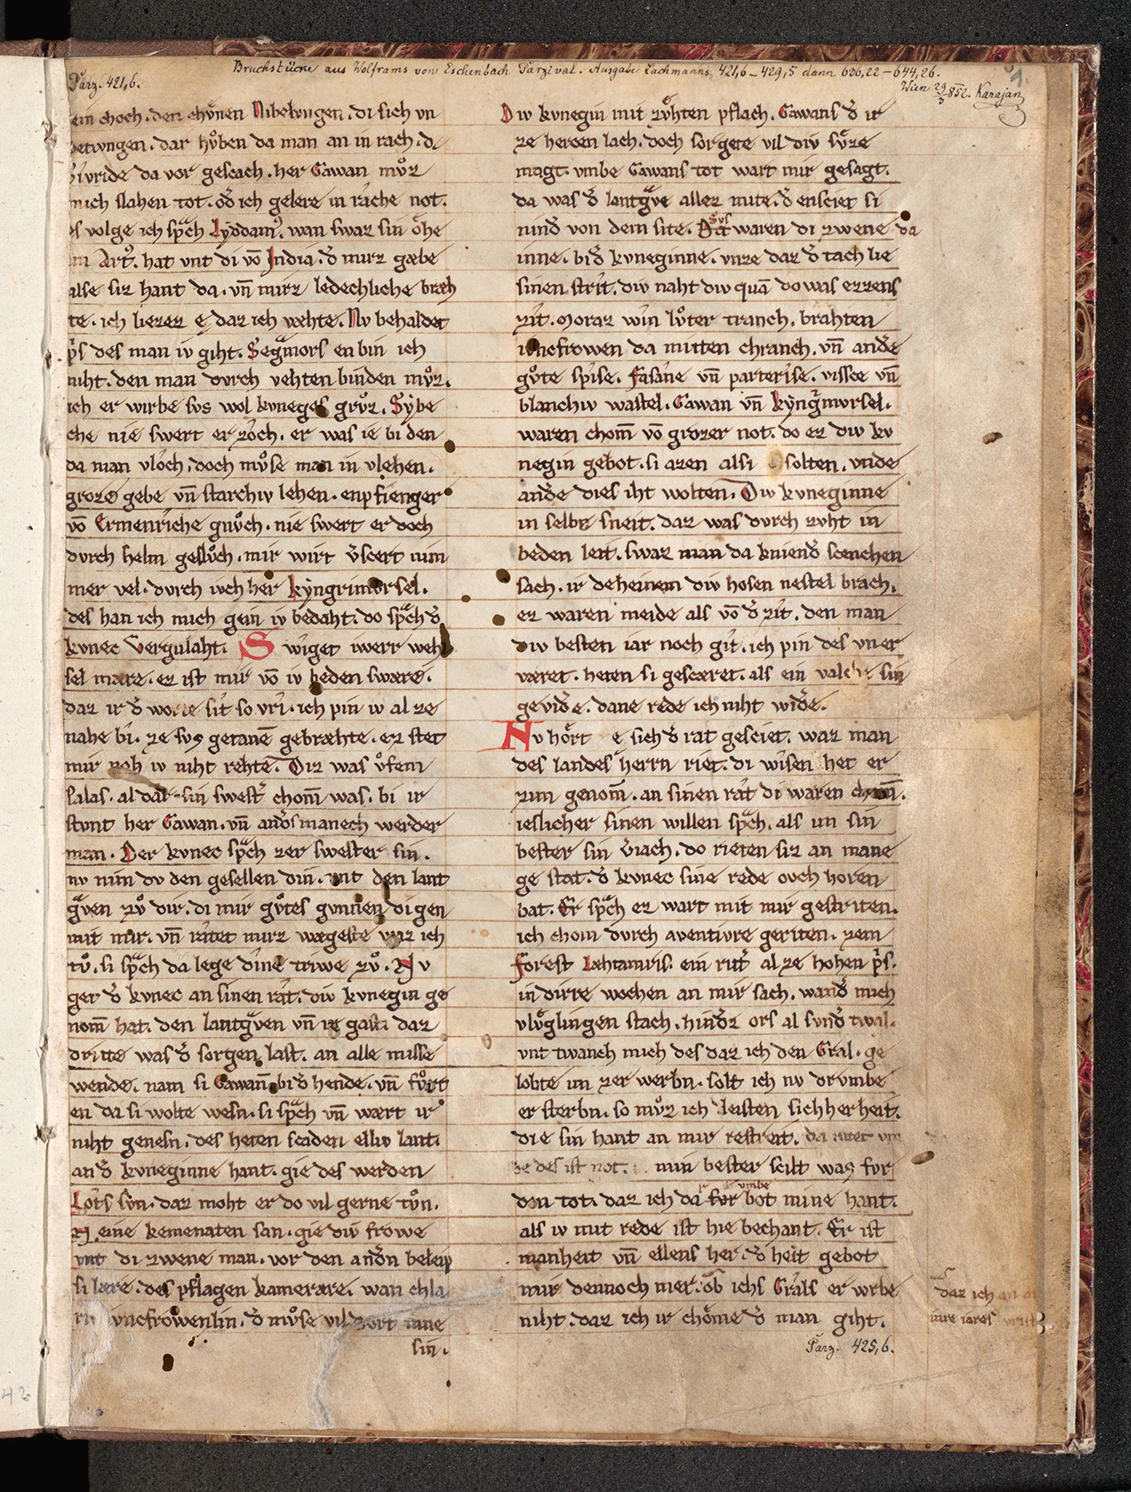 Bruchstücke aus Wolframs von Eschenbach Parzival. Ausgabe Lachmanns 421,6–429,5 dann 636,22–644,26.
Wien 29/3 852. Karajan
1.
Parz. 421,6.
ein choch. den chv̊nen Nibelvngen. di sich vn
betwngen. dar hv̊ben da man an in rach. d
Sivride da vor gescach. her Gawan mv̊z
mich slahen tot. od̄ ich gelere in rache not.
es volge ich sp̄ch Lyddam. wan swaz sin ohe
im Art. hat vnt di vō India. d̄ mirz gæbe
alse siz hant da. vn̄ mirz ledechliche bræh
te. ich liezez e daz ich væhte. Nv behaldet
p̄s des man iv giht. Segamors en bin ich
niht. den man dvrch vehten binden mv̊z.
ich er wirbe svs wol kvneges grv̊z. Sybe
che nie swert er zoch. er was ie bi den
da man vloch. doch mv̊se man in vlehen.
groze gebe vn̄ starchiv lehen. enpfienger
vō Ermenriche gnv̊ch. nie swert er doch
dvrch helm geslv̊ch. mir wirt v̄scert nim
mer vel. dvrch ivch her kyngrimorsel.
des han ich mich gein iv bedaht. do sp̄ch d̄
kvnec Vergulaht. Swiget iwerr weh
sel mære. ez ist mir vō iv beden swære.
daz ir d̄ worte sit so vri. ich pin iv al ze
nahe bi. ze svs getanē gebræhte. ez stet
mir noh iv niht rehte. Diz was v̊fem
Palas. al dar sin swest̄ chom̄ was. bi ir
stvnt her Gawan. vn̄ and̄s manech werder
man. Der kvnec sp̄ch zer swester sin.
nv nim dv den gesellen din. vnt den lant
g̊ven zv̊ dir. di mir gv̊tes gvnnen di gen
mit mir. vn̄ ratet mirz wægeste waz ich
tv̊. si sp̄ch da lege dine triwe zv̊. Nv
ger d̄ kvnec an sinen rat. div kvnegin ge
nom̄ hat. den lantg̊ven vn̄ ir gast. daz
dritte was d̄ sorgen last. an alle misse
wende. nam si Gawan̄ bi d̄ hende. vn̄ fv̊rt
en da si wolte wesn. si sp̄ch vn̄ wært ir
niht genesn. des heten scaden elliv lant.
an d̄ kvneginne hant. gie des werden
Lots svn. daz moht er do vil gerne tv̊n.
N eine kemenaten san. gie div frowe
vnt di zwene man. vor den and̄n beleip
si lære. des pflagen kameræere. wan chla
riv ivncfrowenlin. d̄ mv̊se vil dort inne
sin.
Div kvnegin mit zv̊hten pflach. Gawans d̄ ir
ze herzen lach. doch sorgete vil div sv̊ze
magt. vmbe Gawans tot wart mir gesagt.
da was d̄ lantg̊ve allez mite. d̄ ensciet si
nind̄ von dem site. svs waren di zwene da
inne. bi d̄ kvneginne. vnze daz d̄ tach lie
sinen strit. div naht div quā do was ezzens
zit. Moraz win lv̊ter tranch. brahten
ivncfrowen da mitten chranch. vn̄ and̄e
gv̊te spise. fasane vn̄ parterise. vissce vn̄
blanchiv wastel. Gawan vn̄ kyng̊morsel.
waren chom̄ vō grozer not. do ez div kv
negin gebot. si azen alsi solten. vnde
and̄e dies iht wolten. Div kvneginne
in selbe sneit. daz was dvrch zvht in
beden leit. swaz man da kniend̄ scenchen
sach. ir deheinem div hosen nestel brach.
ez waren meide als vō d̄ zit. den man
div besten iar noch git. ich pin des vner
været. heten si gescæret. als ein valche sin
gevid̄e. dane rede ich niht wid̄e.
Nv hôrt e sich d̄ rat gesciet. waz man
des landes herrn riet. di wisen het er
zim genom̄. an sinen rat di waren chom̄.
ieslicher sinen willen sp̄ch. als im sin
bester sin v̄iach. do rieten siz an mane
ge stat. d̄ kvnec sine rede ovch horen
bat. Er sp̄ch ez wart mit mir gestriten.
ich chom dvrch aventivre geriten. zem
forest Læhtamris. ein rit̄ al ze hohen p̄s.
in dirre wochen an mir sach. wand̄ mich
vlv̊glingen stach. hind̄z ors al svnd̄ twal.
vnt twanch mich des daz ich den Gral. ge
lobte im zer werbn. solt ich nv dr vmbe
er sterbn. so mv̊z ich leisten sichherheit.
die sin hant an mir restreit. da ratet vm
be des ist not. min bester scilt was fvr
den tot. daz ich da fvr vmbe bot mine hant.
als iv mit rede ist hie bechant. Er ist
manheit vn̄ ellens her. d̄ helt gebot
mir dennoch mer. ob ichs Grals er wrbe
niht. daz ich ir chôme d̄ man giht.
daz ich
inre iares vrist
Parz. 425,6.